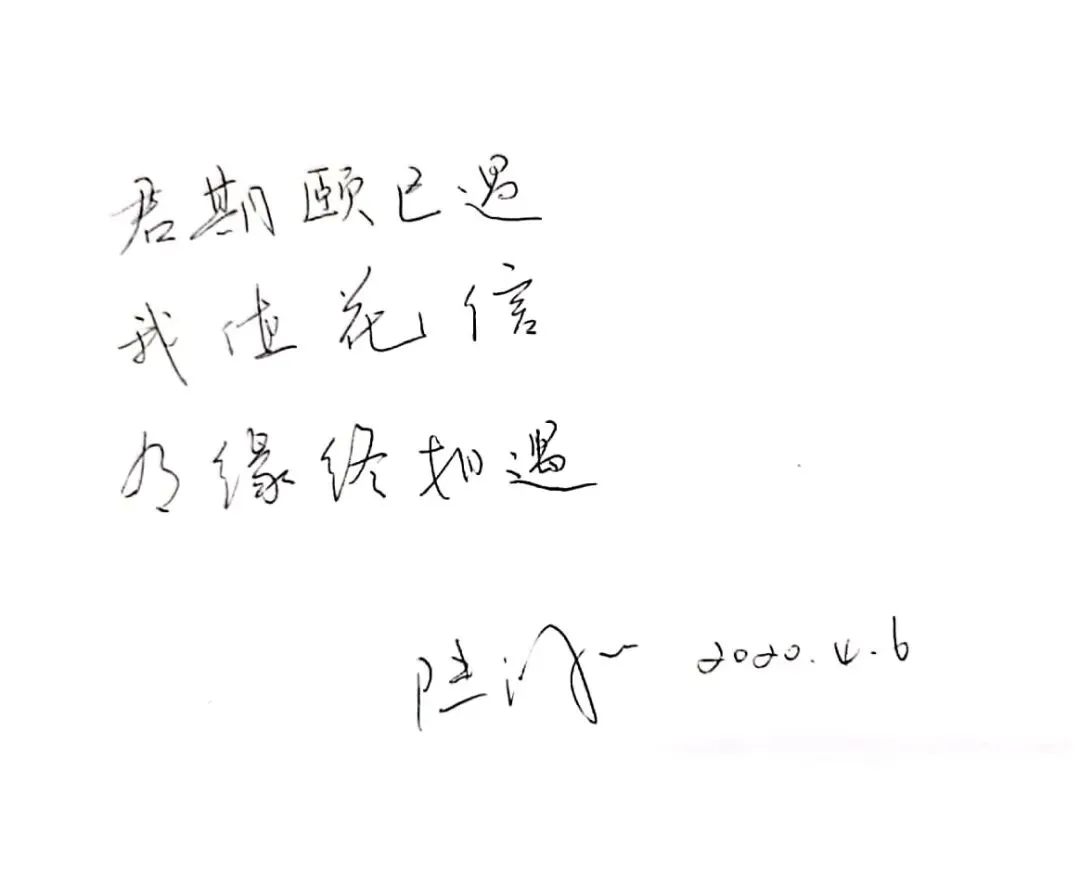 君期颐已遇
我值花信
有缘终相遇
2020.4.6